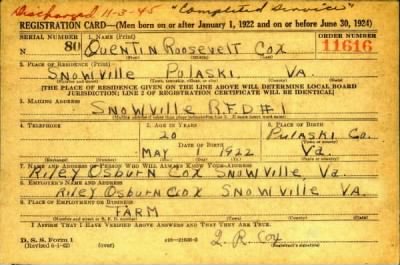 Discharged 11-3-45 "Completed Service"
REGISTRATION CARD—(Men born on or after January 1, 1922 and on or before June 30, 1924)
SERIAL NUMBER 1. NAME (Print) ORDER NUMBER
N 80 QUENTIN ROOSEVELT COX 11616
2. PLACE OF RESIDENCE (Print)
SNOWVILLE PULASKI VA.
[THE PLACE OF RESIDENCE GIVEN ON THE LINE ABOVE WILL DETERMINE LOCAL BOARD
JURISDICTION; LINE 2 OF REGISTRATION CERTIFICATE WILL BE IDENTICAL]
3. MAILING ADDRESS
SNOWVILLE R.F.D #1
4. TELEPHONE 5. AGE IN YEARS 6. PLACE OF BIRTH
20 PULASKI CO.
DATE OF BIRTH
MAY 1 1922 VA.
(Exchange) (Number) (Mo.) (Day) (Yr.) (State or country)
7. NAME AND ADDRESS OF PERSON WHO WILL ALWAYS KNOW YOUR ADDRESS
RILEY OSBURN COX SNOWVILLE, VA.
8. EMPLOYER'S NAME AND ADDRESS
RILEY OSBURN COX SNOWVILLE VA.
9. PLACE OF EMPLOYMENT OR BUSINESS
FARM
(Number and street or R. F. D. number) (Town) (County) (State)
I AFFIRM THAT I HAVE VERIFIED ABOVE ANSWERS AND THAT THEY ARE TRUE.
D. S. S. Form 1 Q. R. Cox
(Revised 6-1-42) (Registrant's signature)